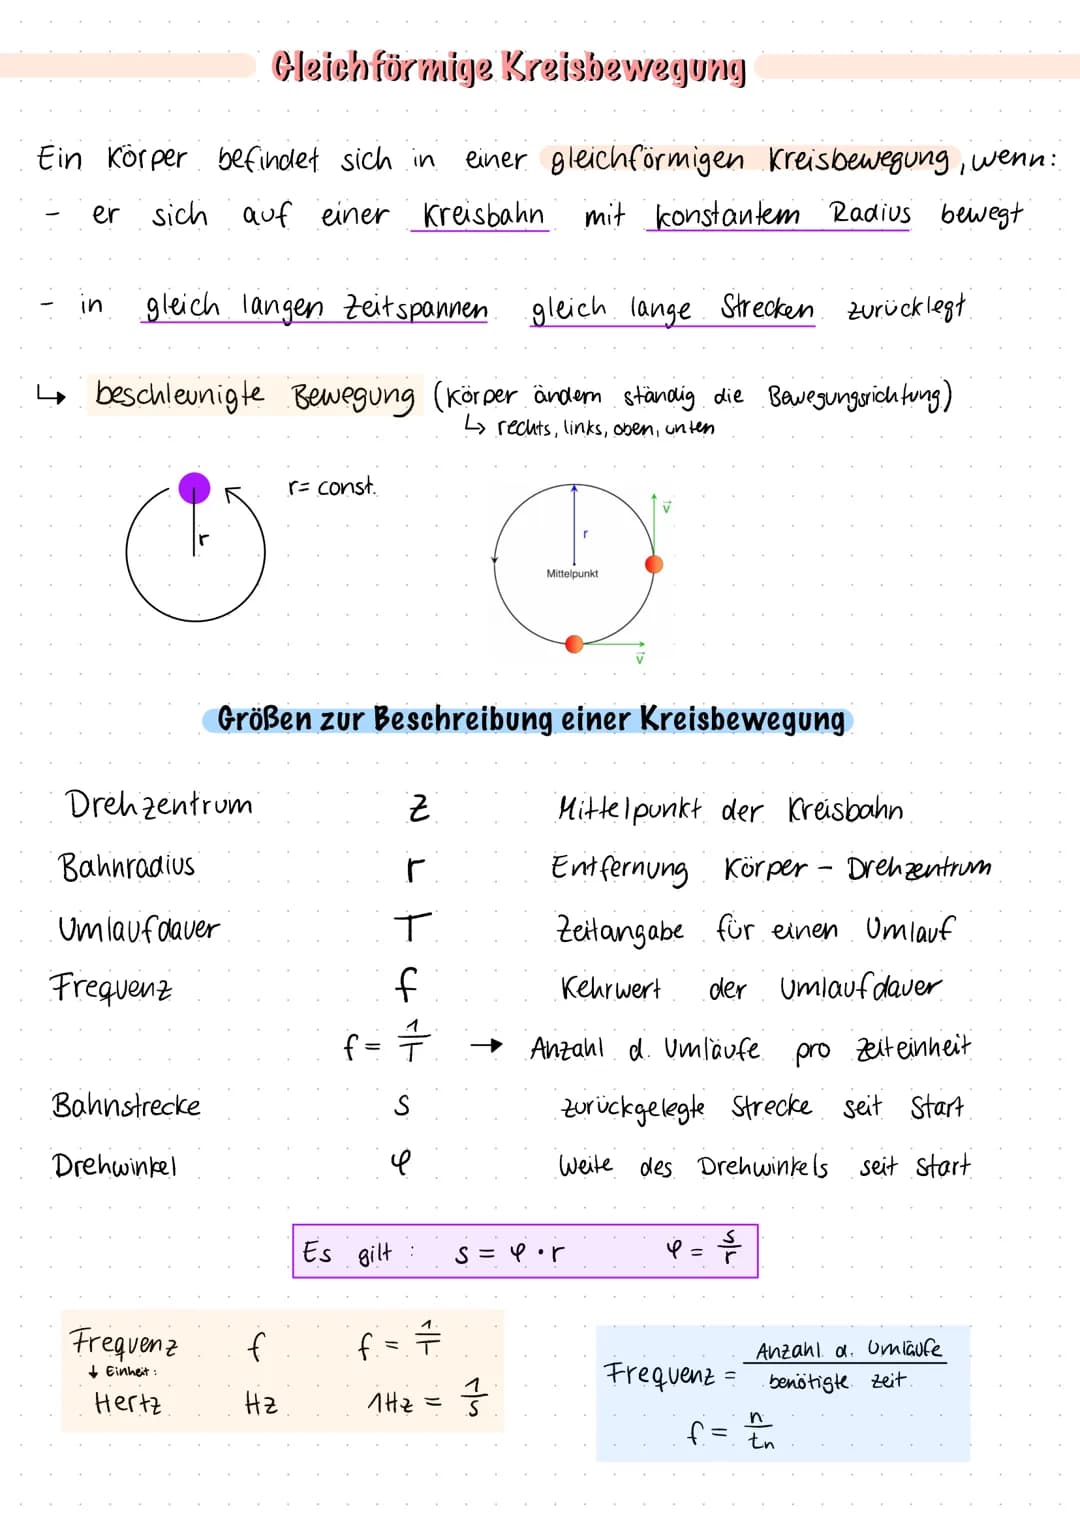 Gleichförmige Kreisbewegung
Ein Körper befindet sich in einer gleichförmigen Kreisbewegung, wenn:
- er sich auf einer Kreisbahn mit konstantem Radius bewegt
- in gleich langen Zeitspannen gleich lange Strecken zurücklegt
↳ beschleunigte Bewegung (Körper ändern ständig die Bewegungsrichtung)
↳ rechts, links, oben, unten
r = const.
r
r
v⃗
Mittelpunkt
v⃗
Größen zur Beschreibung einer Kreisbewegung
Drehzentrum Z Mittelpunkt der Kreisbahn
Bahnradius r Entfernung Körper - Drehzentrum
Umlaufdauer T Zeitangabe für einen Umlauf
Frequenz f Kehrwert der Umlaufdauer
f = 1/T → Anzahl d. Umläufe pro Zeiteinheit
Bahnstrecke s zurückgelegte Strecke seit Start
Drehwinkel φ Weite des Drehwinkels seit Start
Es gilt : s = φ · r φ = s/r
Frequenz f f = 1/T
↓ Einheit :
Hertz Hz 1Hz = 1/s
Frequenz = Anzahl d. Umläufe / benötigte Zeit
f = n/tn